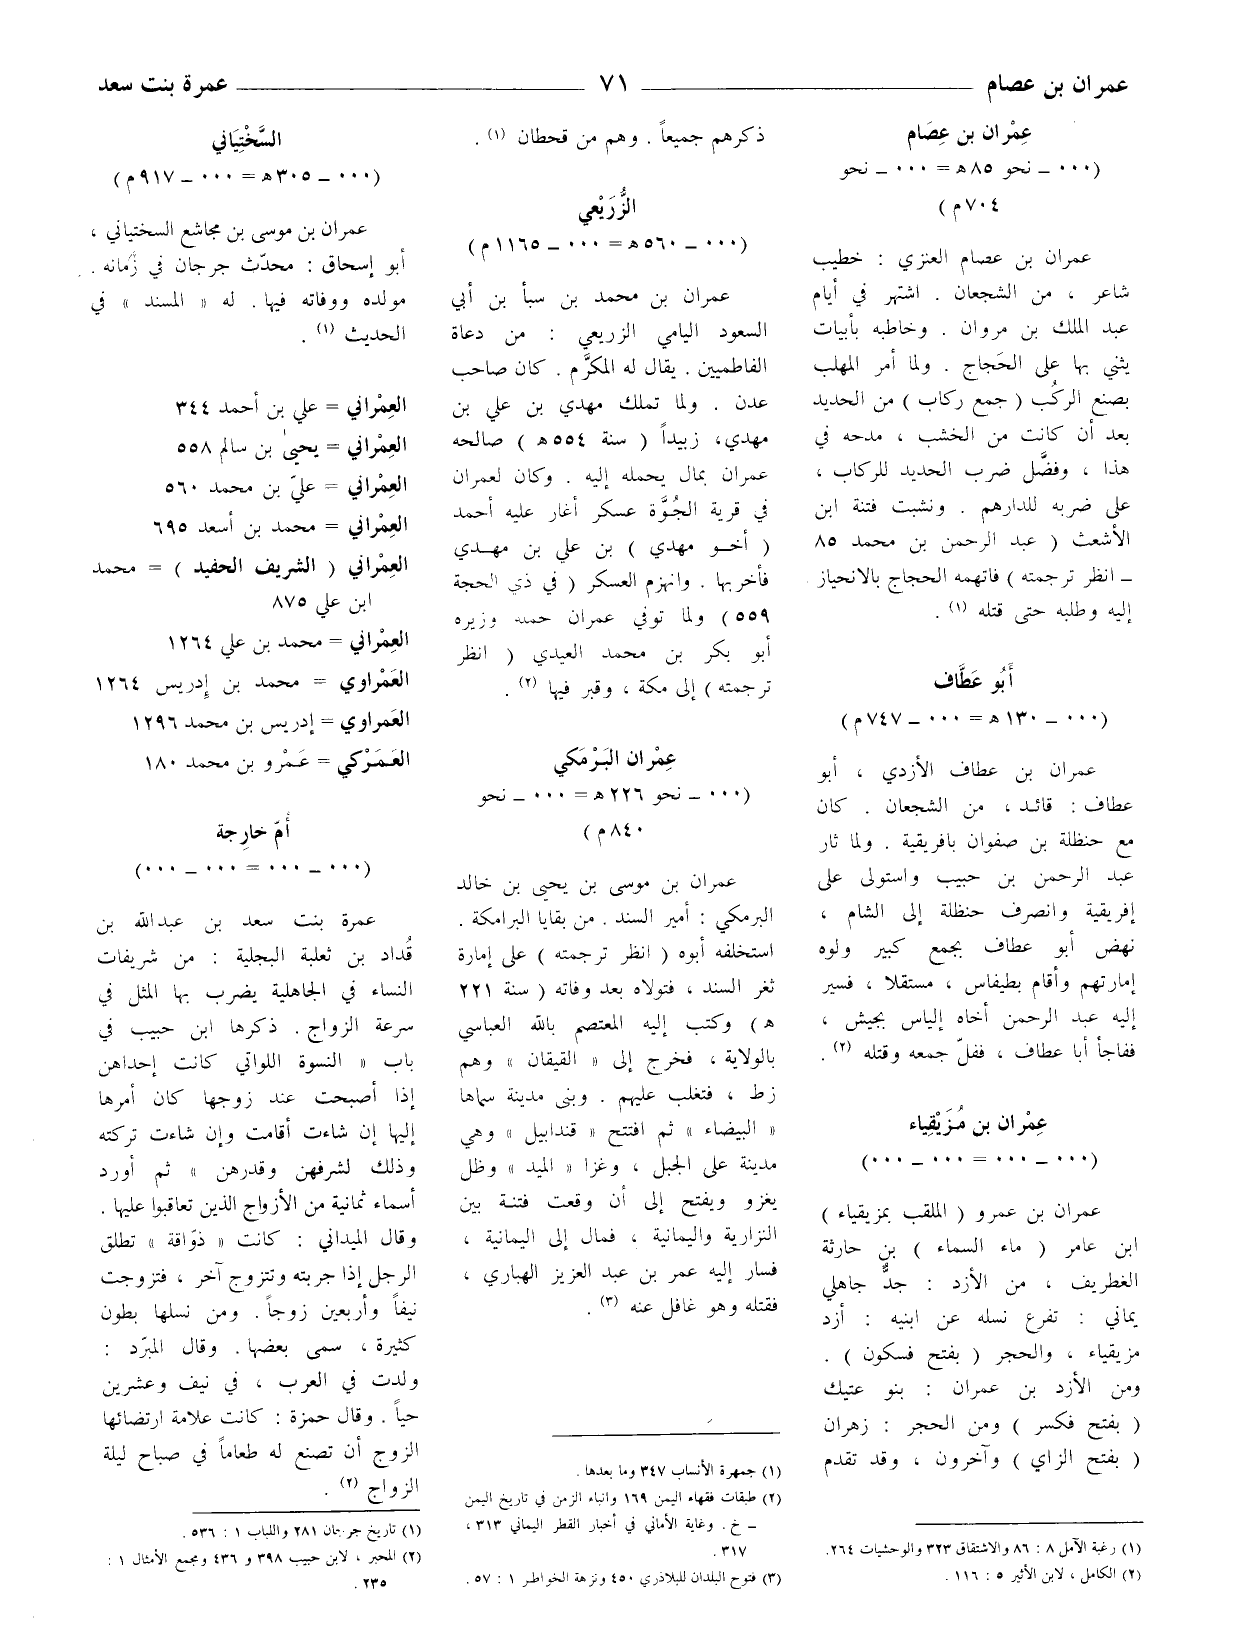 عمران بن عصام ــــــ ٧١ ــــــ عمرة بنت سعد
عِمْران بن عِصَام
(٠٠٠ ــ نحو ٨٥ ه = ٠٠٠ ــ نحو
٧٠٤ م)
عمران بن عصام العنزي : خطيب
شاعر ، من الشجعان . اشتهر في أيام
عبد الملك بن مروان . وخاطبه بأبيات
يثني بها على الحَجاج . ولما أمر المهلب
بصنع الركُب ( جمع ركاب ) من الحديد
بعد أن كانت من الخشب ، مدحه في
هذا ، وفضَّل ضرب الحديد للركاب ،
على ضربه للدارهم . ونشبت فتنة ابن
الأشعث ( عبد الرحمن بن محمد ٨٥
ــ انظر ترجمته ) فاتهمه الحجاج بالانحياز
إليه وطلبه حتى قتله (١) .
أَبُو عَطَّاف
(٠٠٠ ــ ١٣٠ ه = ٠٠٠ ــ ٧٤٧ م)
عمران بن عطاف الأزدي ، أبو
عطاف : قائد ، من الشجعان . كان
مع حنظلة بن صفوان بافريقية . ولما ثار
عبد الرحمن بن حبيب واستولى على
إفريقية وانصرف حنظلة إلى الشام ،
نهض أبو عطاف بجمع كبير ولوه
إمارتهم وأقام بطيفاس ، مستقلا ، فسير
إليه عبد الرحمن أخاه إلياس بجيش ،
ففاجأ أبا عطاف ، ففلّ جمعه وقتله (٢) .
عِمْران بن مُزَيْقِياء
(٠٠٠ ــ ٠٠٠ = ٠٠٠ ــ ٠٠٠)
عمران بن عمرو ( الملقب بمزيقياء )
ابن عامر ( ماء السماء ) بن حارثة
الغطريف ، من الأزد : جدٌّ جاهلي
يماني : تفرع نسله عن ابنيه : أزد
مزيقياء ، والحجر ( بفتح فسكون ) .
ومن الأزد بن عمران : بنو عتيك
( بفتح فكسر ) ومن الحجر : زهران
( بفتح الزاي ) وآخرون ، وقد تقدم
(١) رغبة الآمل ٨ : ٨٦ والاشتقاق ٣٢٣ والوحشيات ٢٦٤.
(٢) الكامل ، لابن الأثير ٥ : ١١٦ .
ذكرهم جميعاً . وهم من قحطان (١) .
الزُّرَيْعي
(٠٠٠ ــ ٥٦٠ ه = ٠٠٠ ــ ١١٦٥ م)
عمران بن محمد بن سبأ بن أبي
السعود اليامي الزريعي : من دعاة
الفاطميين . يقال له المكرَّم . كان صاحب
عدن . ولما تملك مهدي بن علي بن
مهدي، زبيداً ( سنة ٥٥٤ ه ) صالحه
عمران بمال يحمله إليه . وكان لعمران
في قرية الجُوَّة عسكر أغار عليه أحمد
( أخو مهدي ) بن علي بن مهدي
فأخربها . وانهزم العسكر ( في ذي الحجة
٥٥٩ ) ولما توفي عمران حمله وزيره
أبو بكر بن محمد العيدي ( انظر
ترجمته ) إلى مكة ، وقبر فيها (٢) .
عِمْران البَرْمَكي
(٠٠٠ ــ نحو ٢٢٦ ه = ٠٠٠ ــ نحو
٨٤٠ م)
عمران بن موسى بن يحيى بن خالد
البرمكي : أمير السند . من بقايا البرامكة .
استخلفه أبوه ( انظر ترجمته ) على إمارة
ثغر السند ، فتولاه بعد وفاته ( سنة ٢٢١
ه ) وكتب إليه المعتصم بالله العباسي
بالولاية ، فخرج إلى « القيقان » وهم
زط ، فتغلب عليهم . وبنى مدينة سماها
« البيضاء » ثم افتتح « قندابيل » وهي
مدينة على الجبل ، وغزا « الميد » وظل
يغزو ويفتح إلى أن وقعت فتنة بين
النزارية واليمانية ، فمال إلى اليمانية ،
فسار إليه عمر بن عبد العزيز الهباري ،
فقتله وهو غافل عنه (٣) .
(١) جمهرة الأنساب ٣٤٧ وما بعدها .
(٢) طبقات فقهاء اليمن ١٦٩ وانباء الزمن في تاريخ اليمن
ــ خ . وغاية الأماني في أخبار القطر اليماني ٣١٣ ،
٣١٧ .
(٣) فتوح البلدان للبلاذري ٤٥٠ ونزهة الخواطر ١ : ٥٧ .
السَّخْتِيَاني
(٠٠٠ ــ ٣٠٥ ه = ٠٠٠ ــ ٩١٧ م)
عمران بن موسى بن مجاشع السختياني ،
أبو إسحاق : محدّث جرجان في زمانه .
مولده ووفاته فيها . له « المسند » في
الحديث (١) .
العِمْراني = علي بن أحمد ٣٤٤
العِمْراني = يحيىٰ بن سالم ٥٥٨
العِمْراني = عليّ بن محمد ٥٦٠
العِمْراني = محمد بن أسعد ٦٩٥
العِمْراني ( الشريف الحفيد ) = محمد
ابن علي ٨٧٥
العِمْراني = محمد بن علي ١٢٦٤
العَمْراوي = محمد بن إدريس ١٢٦٤
العَمراوي = إدريس بن محمد ١٢٩٦
العَمَرْكي = عَمْرو بن محمد ١٨٠
أُمّ خارِجة
(٠٠٠ ــ ٠٠٠ = ٠٠٠ ــ ٠٠٠)
عمرة بنت سعد بن عبدالله بن
قُداد بن ثعلبة البجلية : من شريفات
النساء في الجاهلية يضرب بها المثل في
سرعة الزواج . ذكرها ابن حبيب في
باب « النسوة اللواتي كانت إحداهن
إذا أصبحت عند زوجها كان أمرها
إليها إن شاءت أقامت وإن شاءت تركته
وذلك لشرفهن وقدرهن » ثم أورد
أسماء ثمانية من الأزواج الذين تعاقبوا عليها .
وقال الميداني : كانت « ذوّاقة » تطلق
الرجل إذا جربته وتتزوج آخر ، فتزوجت
نيفاً وأربعين زوجاً . ومن نسلها بطون
كثيرة ، سمى بعضها . وقال المبرّد :
ولدت في العرب ، في نيف وعشرين
حياً . وقال حمزة : كانت علامة ارتضائها
الزوج أن تصنع له طعاماً في صباح ليلة
الزواج (٢) .
(١) تاريخ جرجان ٢٨١ واللباب ١ : ٥٣٦ .
(٢) المحبر ، لابن حبيب ٣٩٨ و ٤٣٦ ومجمع الأمثال ١ :
٢٣٥ .